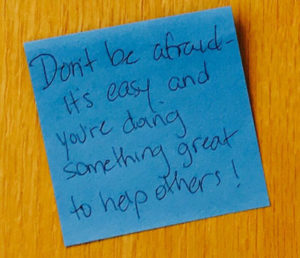 Don't be afraid-
it's easy and
you're doing
something great
to help others!